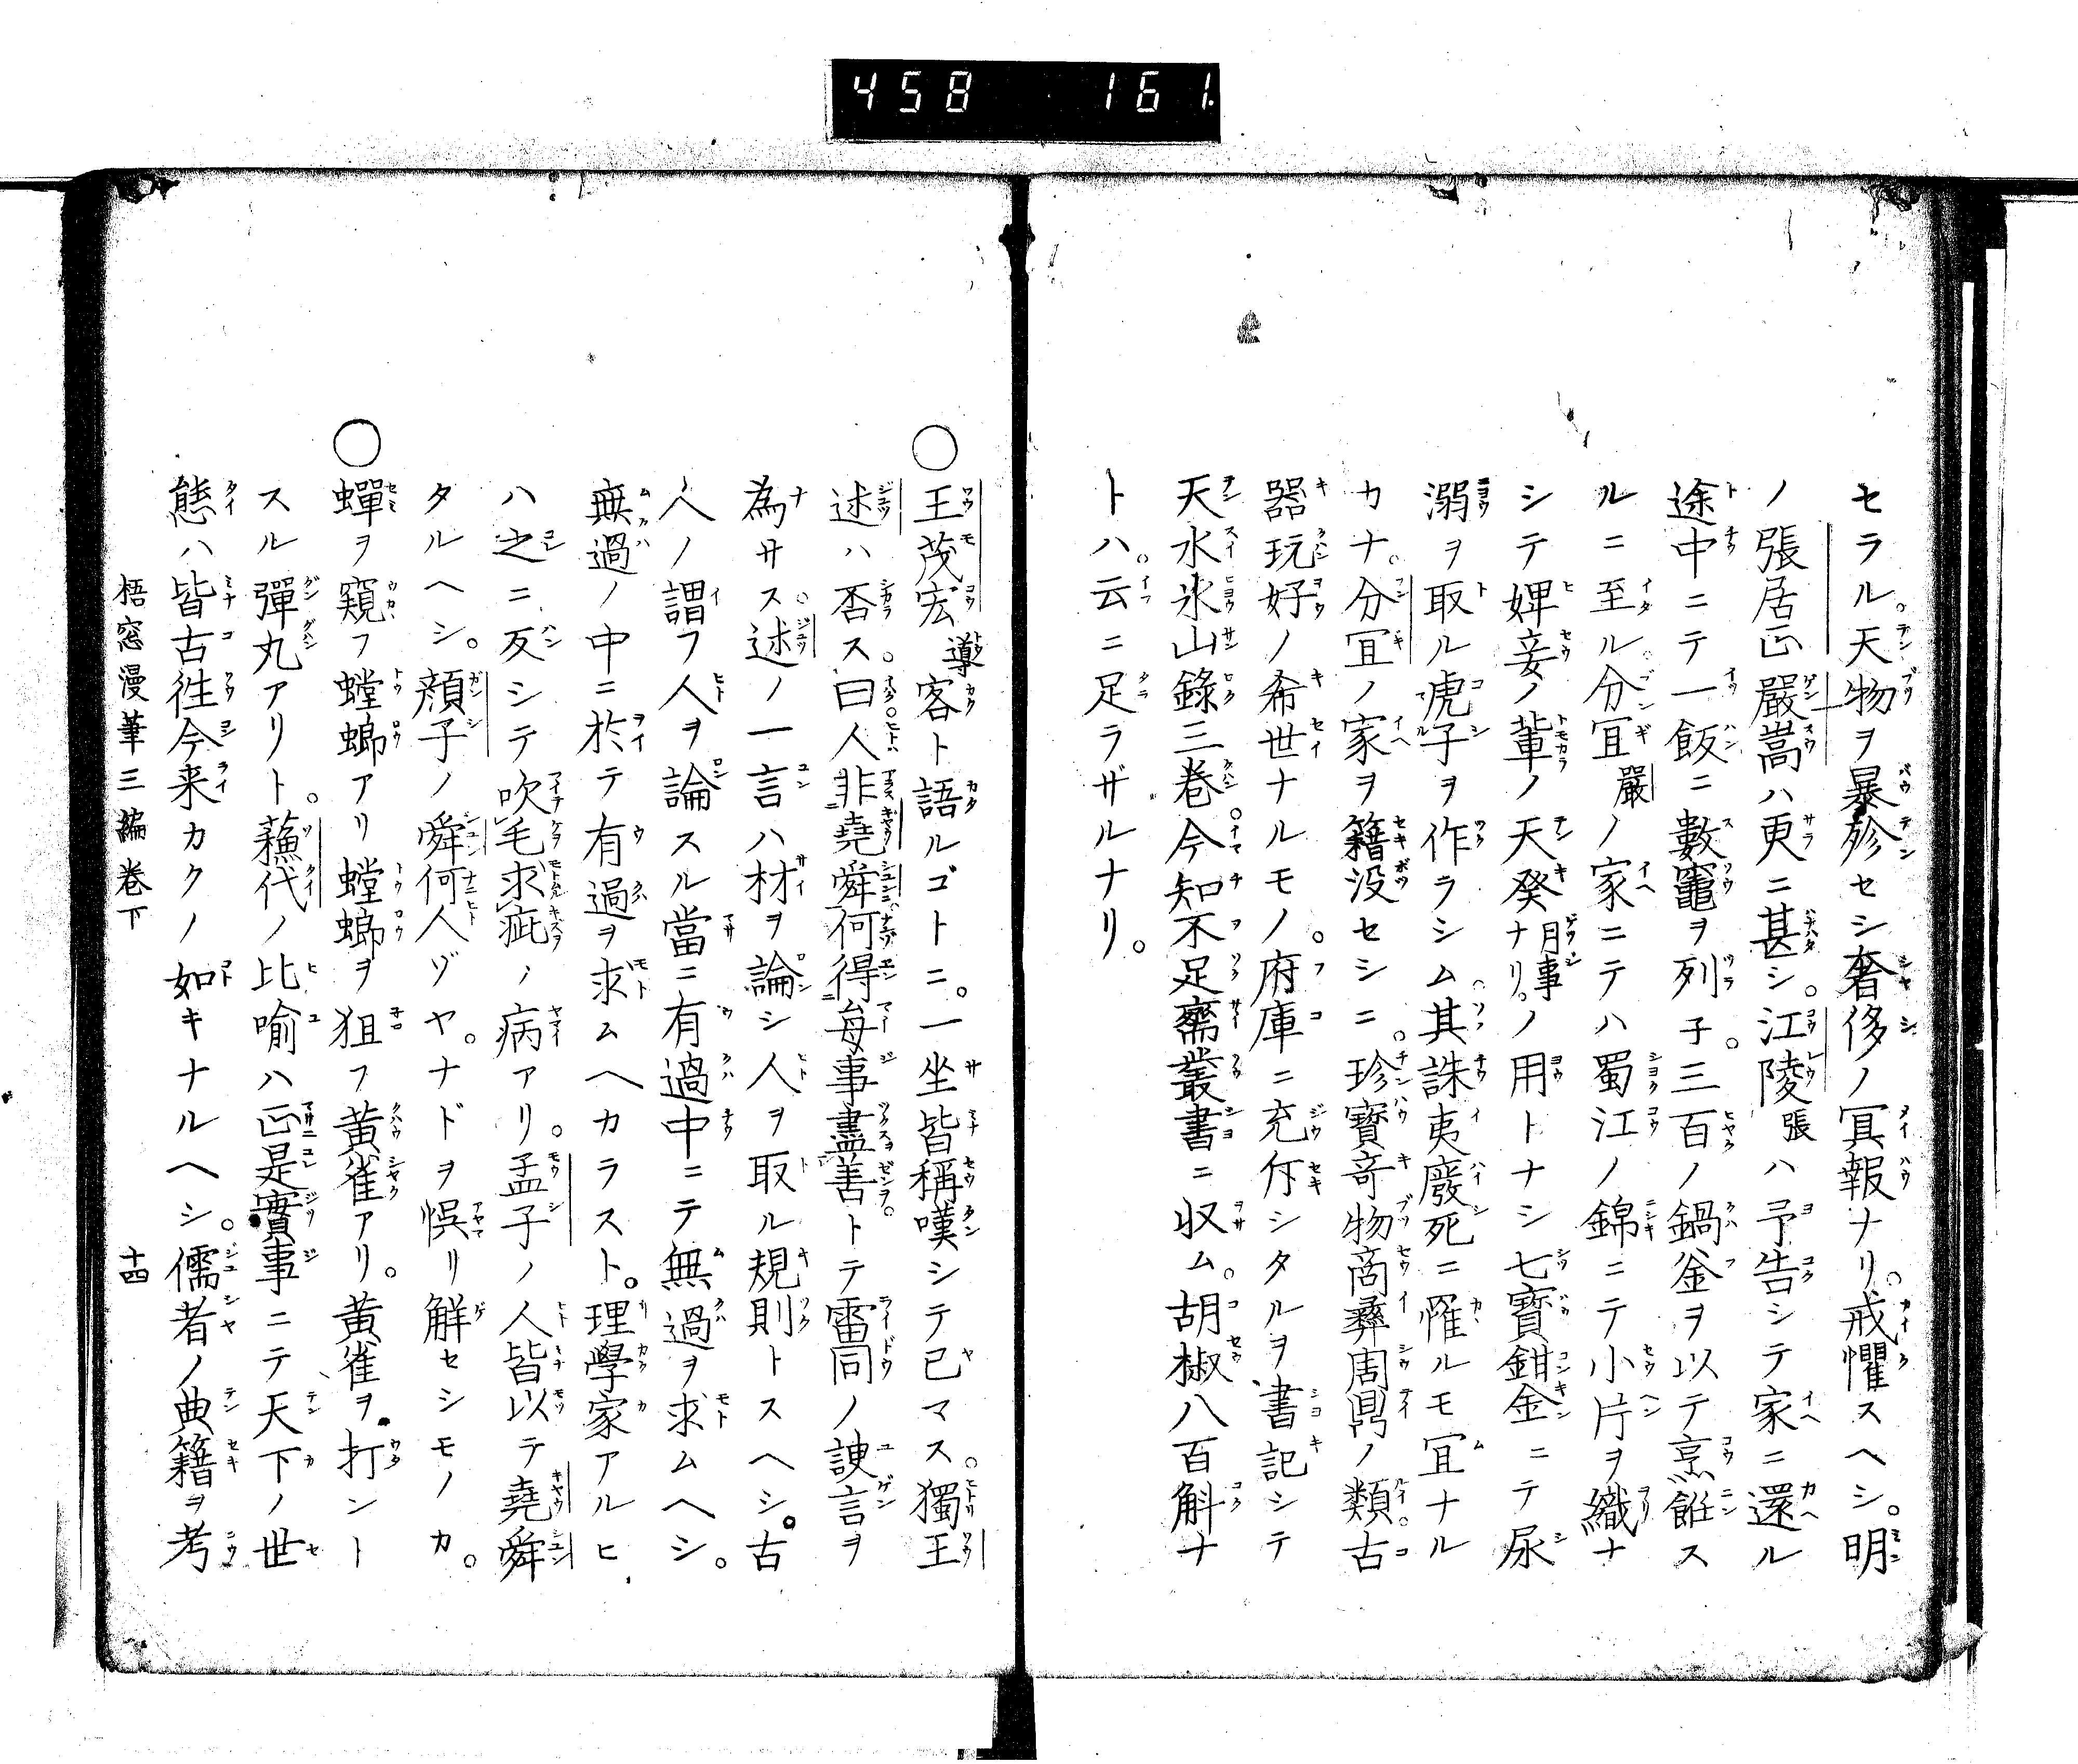 458 161.
セラル。天物ヲ暴殄セシ奢侈ノ冥報ナリ。戒懼スヘシ。明
ノ張居正嚴嵩ハ更ニ甚シ。江陵張ハ予告シテ家ニ還ル
途中ニテ一飯ニ數竈ヲ列子。三百ノ鍋釜ヲ以テ烹飪ス
ルニ至ル。分宜嚴ノ家ニテハ蜀江ノ錦ニテ小片ヲ織ナ
シテ婢妾ノ輩ノ天癸月事ナリ。ノ用トナシ七寶鉗金ニテ尿
溺ヲ取ル虎子ヲ作ラシム。其誅夷廢死ニ罹ルモ宜ナル
カナ。分宜ノ家ヲ籍没セシニ。珍寶竒物商彝周鼎ノ類。古
器玩好ノ希世ナルモノ。府庫ニ充斥シタルヲ書記シテ
天水氷山錄三卷。今知不足齋叢書ニ収ム。胡椒八百斛ナ
トハ。云ニ足ラザルナリ。
○王茂宏導客ト語ルゴトニ。一坐皆稱嘆シテ已マス。獨王
述ハ否ス。曰人非堯舜何得每事盡善トテ雷同ノ諛言ヲ
為サス。述ノ一言ハ材ヲ論シ人ヲ取ル規則トスヘシ。古
人ノ謂フ人ヲ論スル當ニ有過中ニテ無過ヲ求ムヘシ。
無過ノ中ニ於テ有過ヲ求ムヘカラスト。理學家アルヒ
ハ之ニ反シテ吹毛求疵ノ病アリ。孟子ノ人皆以テ堯舜
タルヘシ。顔子ノ舜何人ゾヤ。ナドヲ悞リ解セシモノカ。
○蟬ヲ窺フ螳螂アリ螳螂ヲ狙フ黄雀アリ。黄雀ヲ打ント
スル彈丸アリト。蘓代ノ比喻ハ正是實事ニテ天下ノ世
態ハ皆古徃今来カクノ如キナルヘシ。儒者ノ典籍ヲ考
梧窓漫筆三編卷下 十四